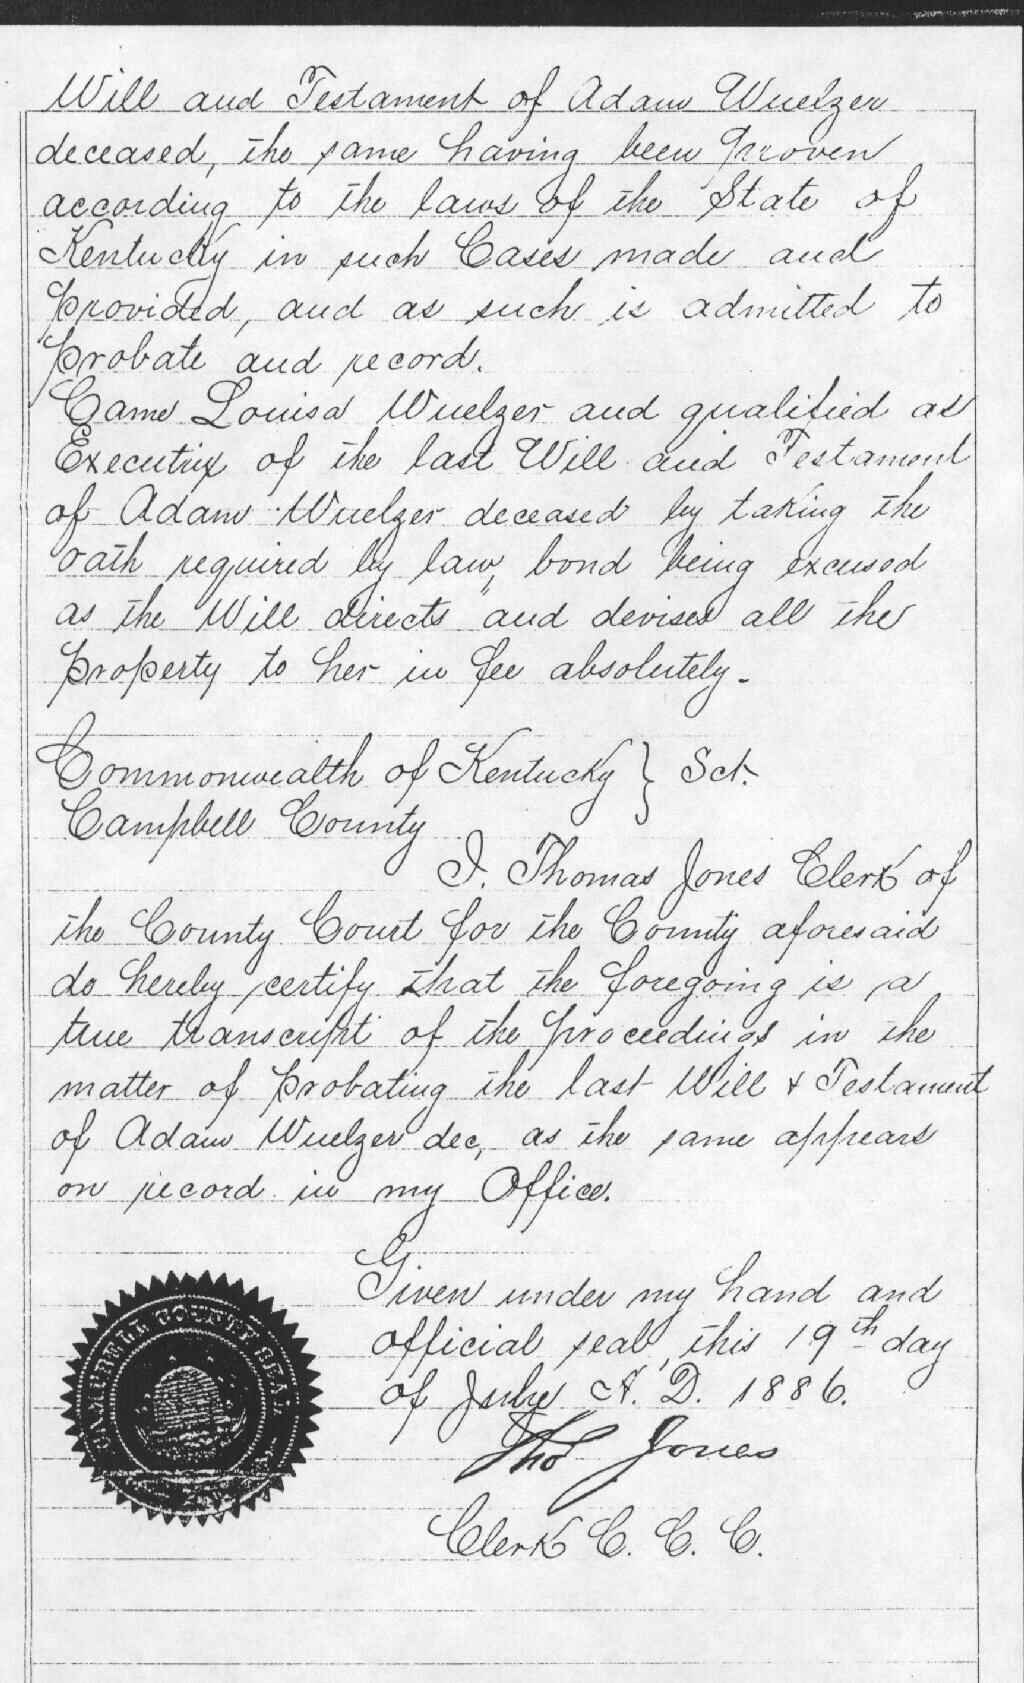 Will and Testament of Adam Wuelzer
deceased, the same having been proven
according to the laws of the State of
Kentucky in such Cases made and
provided, and as such is admitted to
probate and record.
Came Louisa Wuelzer and qualified as
Executrix of the last Will and Testament
of Adam Wuelzer deceased by taking the
oath required by law, bond being excused
as the Will directs and devises all the
property to her in fee absolutely.
Commonwealth of Kentucky } Sct.
Campbell County
I. Thomas Jones Clerk of
the County Court for the County aforesaid
do hereby certify that the foregoing is a
true transcript of the proceedings in the
matter of probating the last Will & Testament
of Adam Wuelzer dec, as the same appears
on record in my Office.
Given under my hand and
official seal, this 19th day
of July A. D. 1886.
Tho Jones
Clerk C. C. C.
CAMPBELL COUNTY SEAL